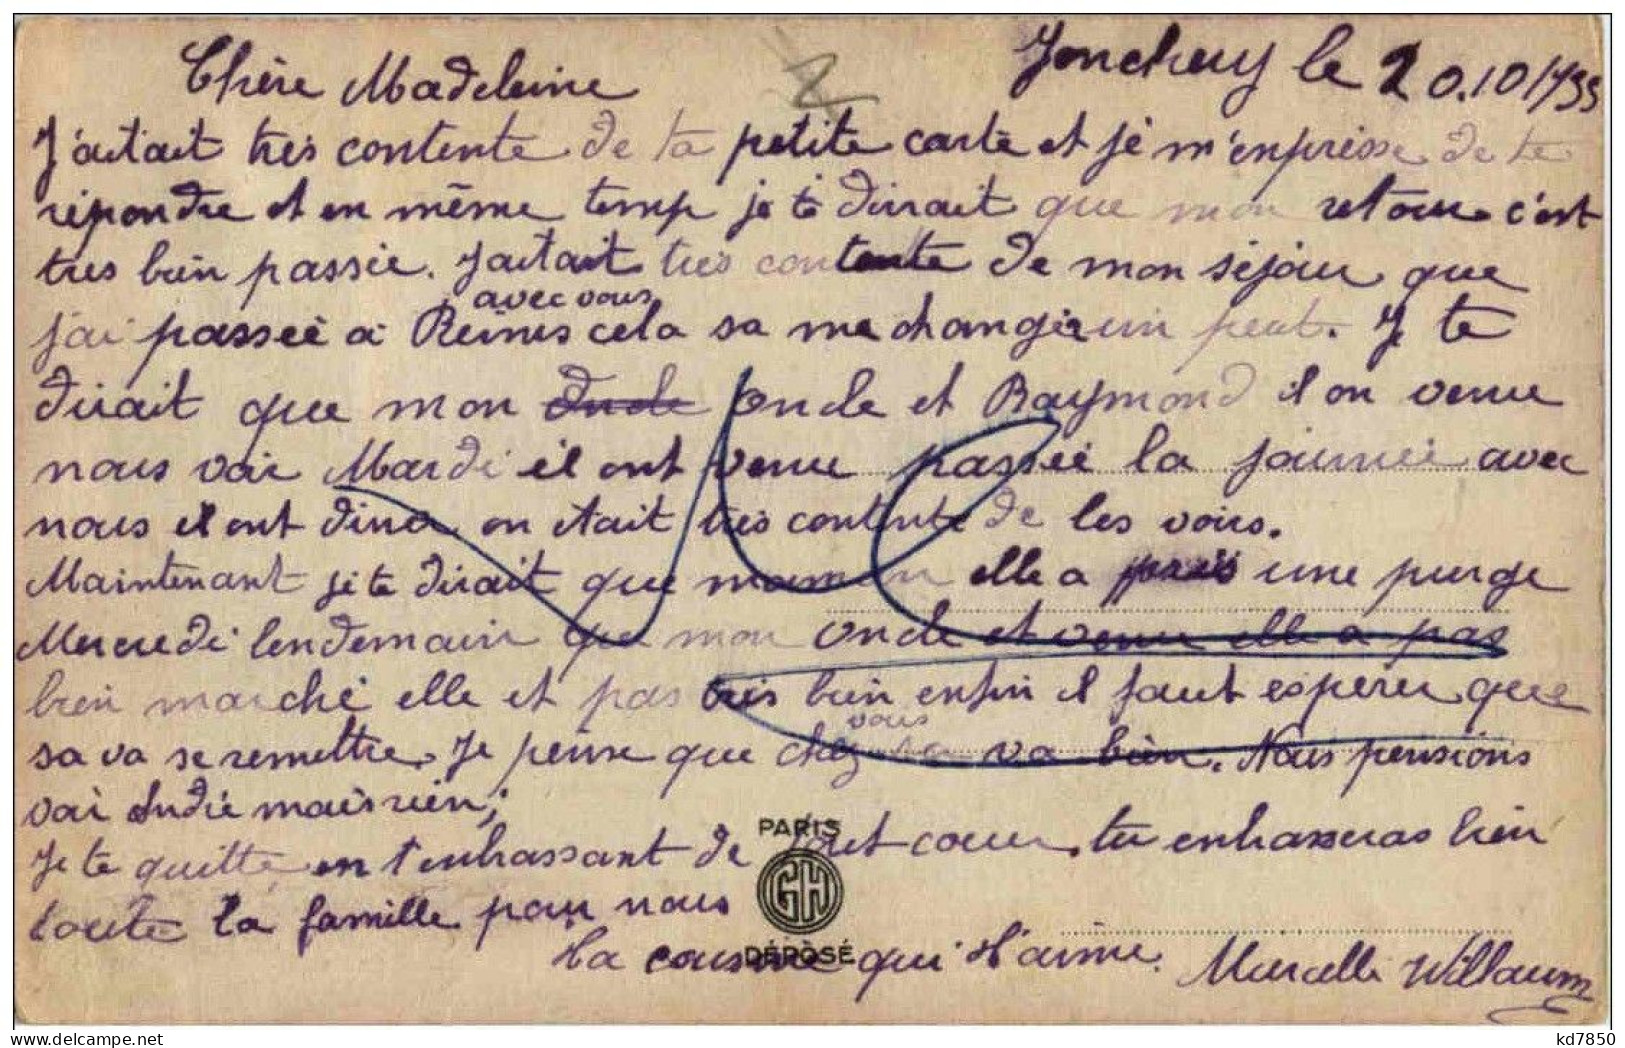 Jonchery le 20.10/1933
Chère Madeleine
J'aitait très contente de ta petite carte et je m'enprèsse de te
répondre et en même temp je te dirait que mon retour c'est
tres bien passée. J'aitait très contente de mon séjour que
avec vous
j'ai passeé a Reims cela sa me changer un peut. Je te
dirait que mon oncle oncle et Raymond il on venu
nous voir Mardi il ont venu passeé la journeé avec
nous il ont diné on était très contente de les voirs.
Maintenant je te dirait que maman elle a pris une purge
Mercredi lendemain que mon oncle et venu elle a pas
bien marché elle et pas très bien enfin il faut esperer que
vous
sa va se remettre. Je pense que chez sa va bien. Nous pensions
voir Andrée mais rien;
Je te quitte en t'enbrassant de tout coeur. tu enbrasseras bien
toute ta famille pour nous
Ta cousine qui t'aime. Marcelle Willaum
PARIS
GH
DÉPOSÉ
kd7850